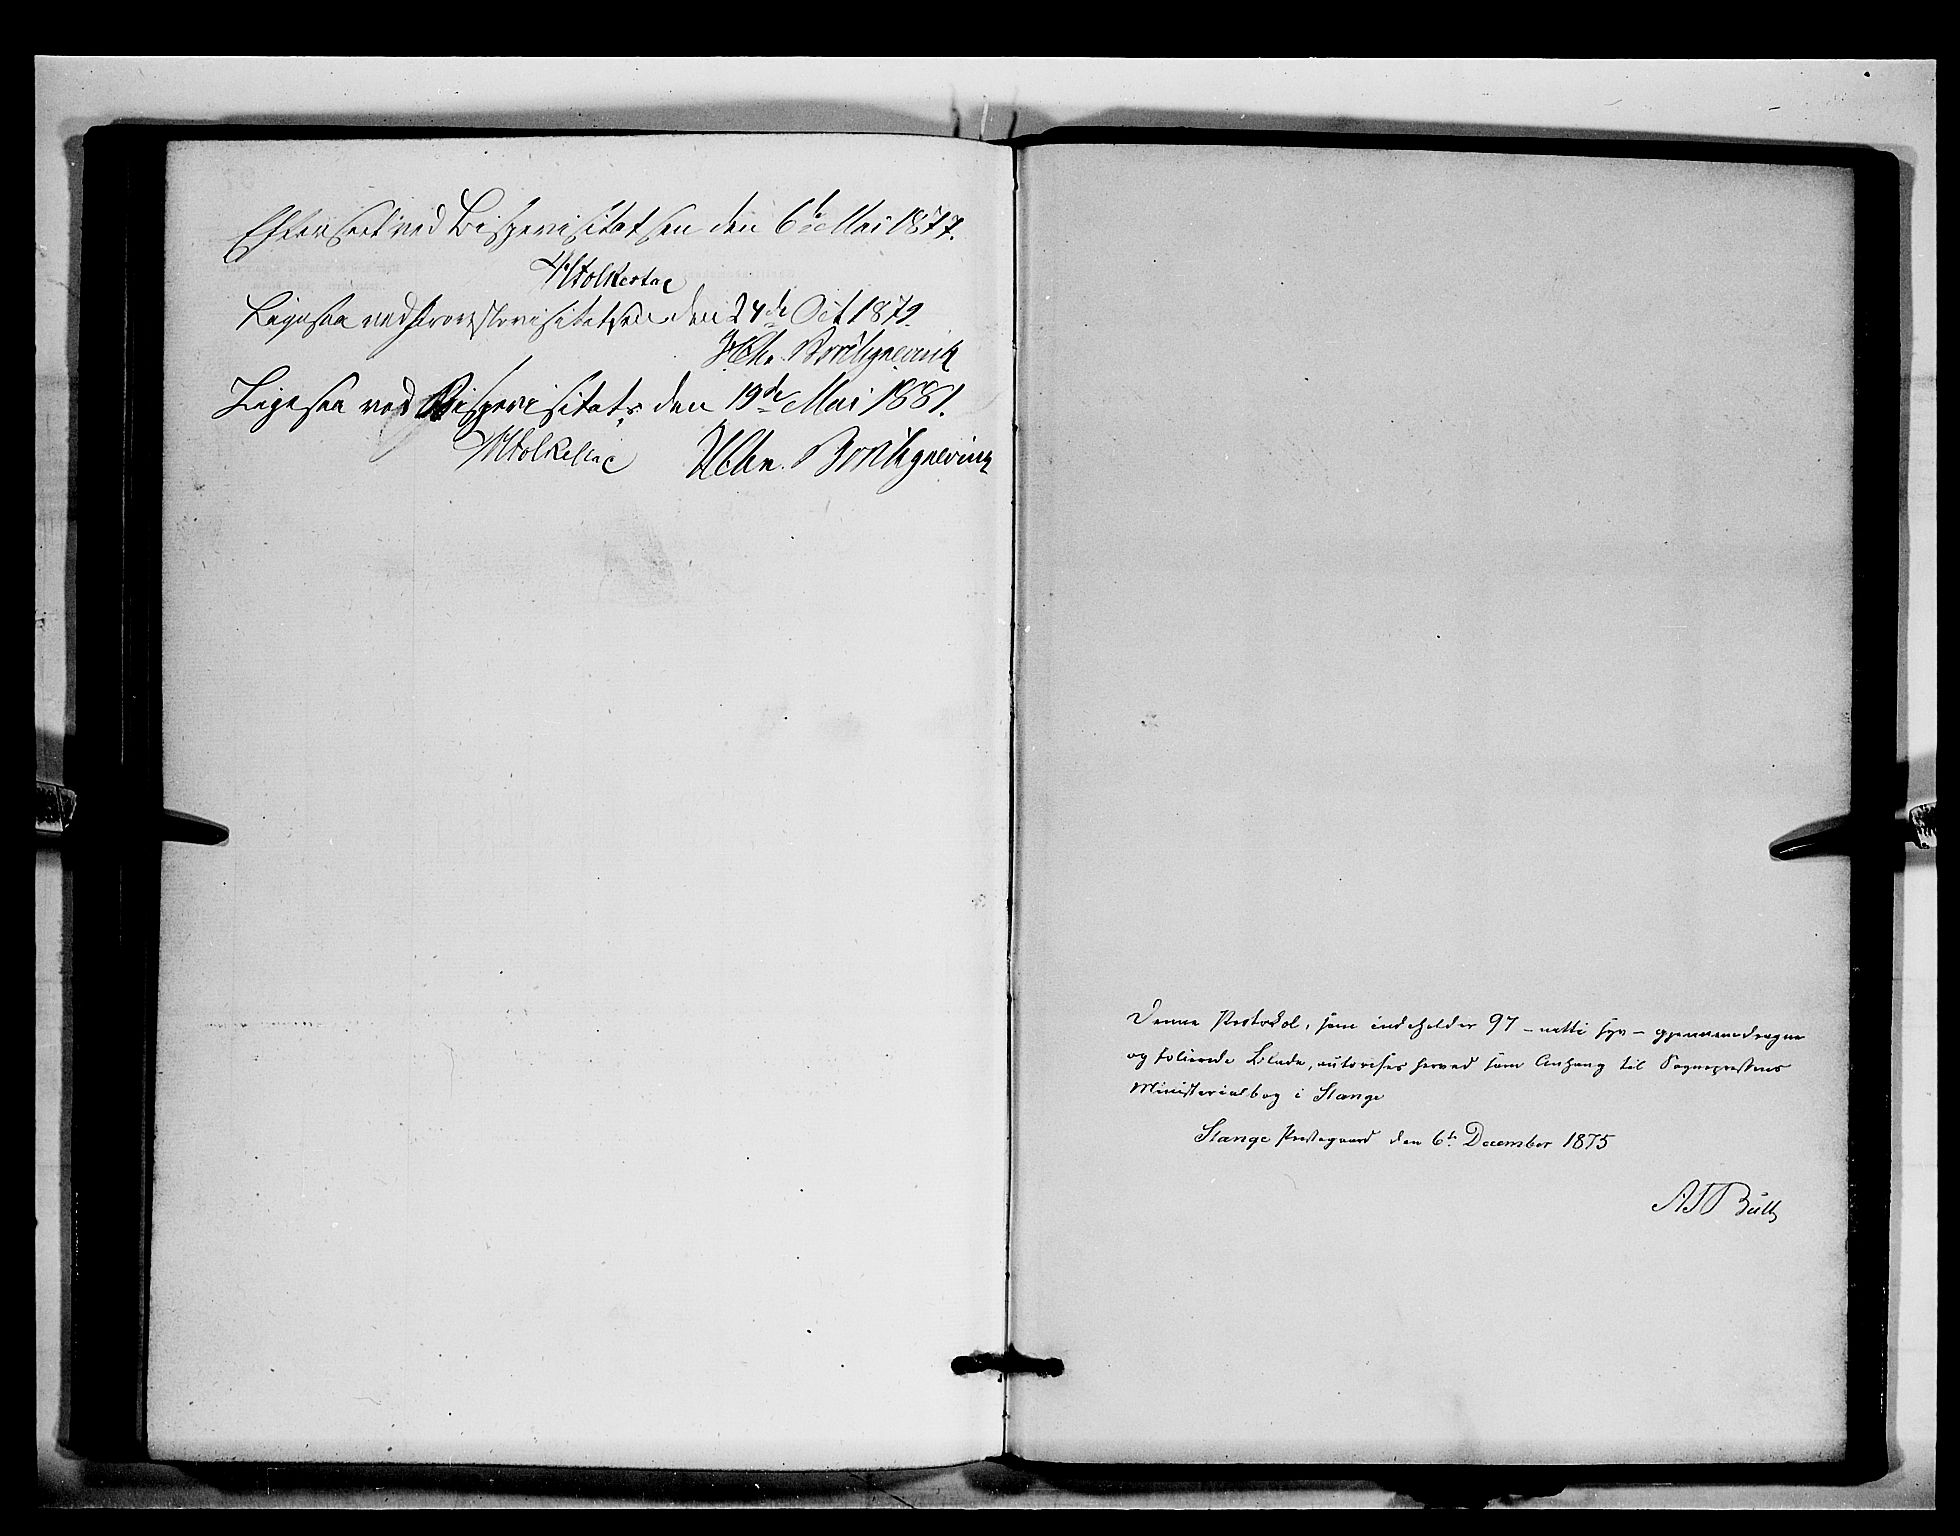 Efterseet ved Bispevisitatsen den 6te Mai 1877.
Ligesaa ved Provstevisitatsen den 24de Oct 1879.
H Chr.
Ligesaa ved Bispevisitats den 19de Mai 1881.
H Chr.
Denne Protokol, som indeholder 97 – nitti syv – gjennemdragne
og folierede Blade, autoriseres herved som Anhang til Sognepræstens
Ministerialbog i Stange
Stange Præstegaard den 6te December 1875
A J Büll